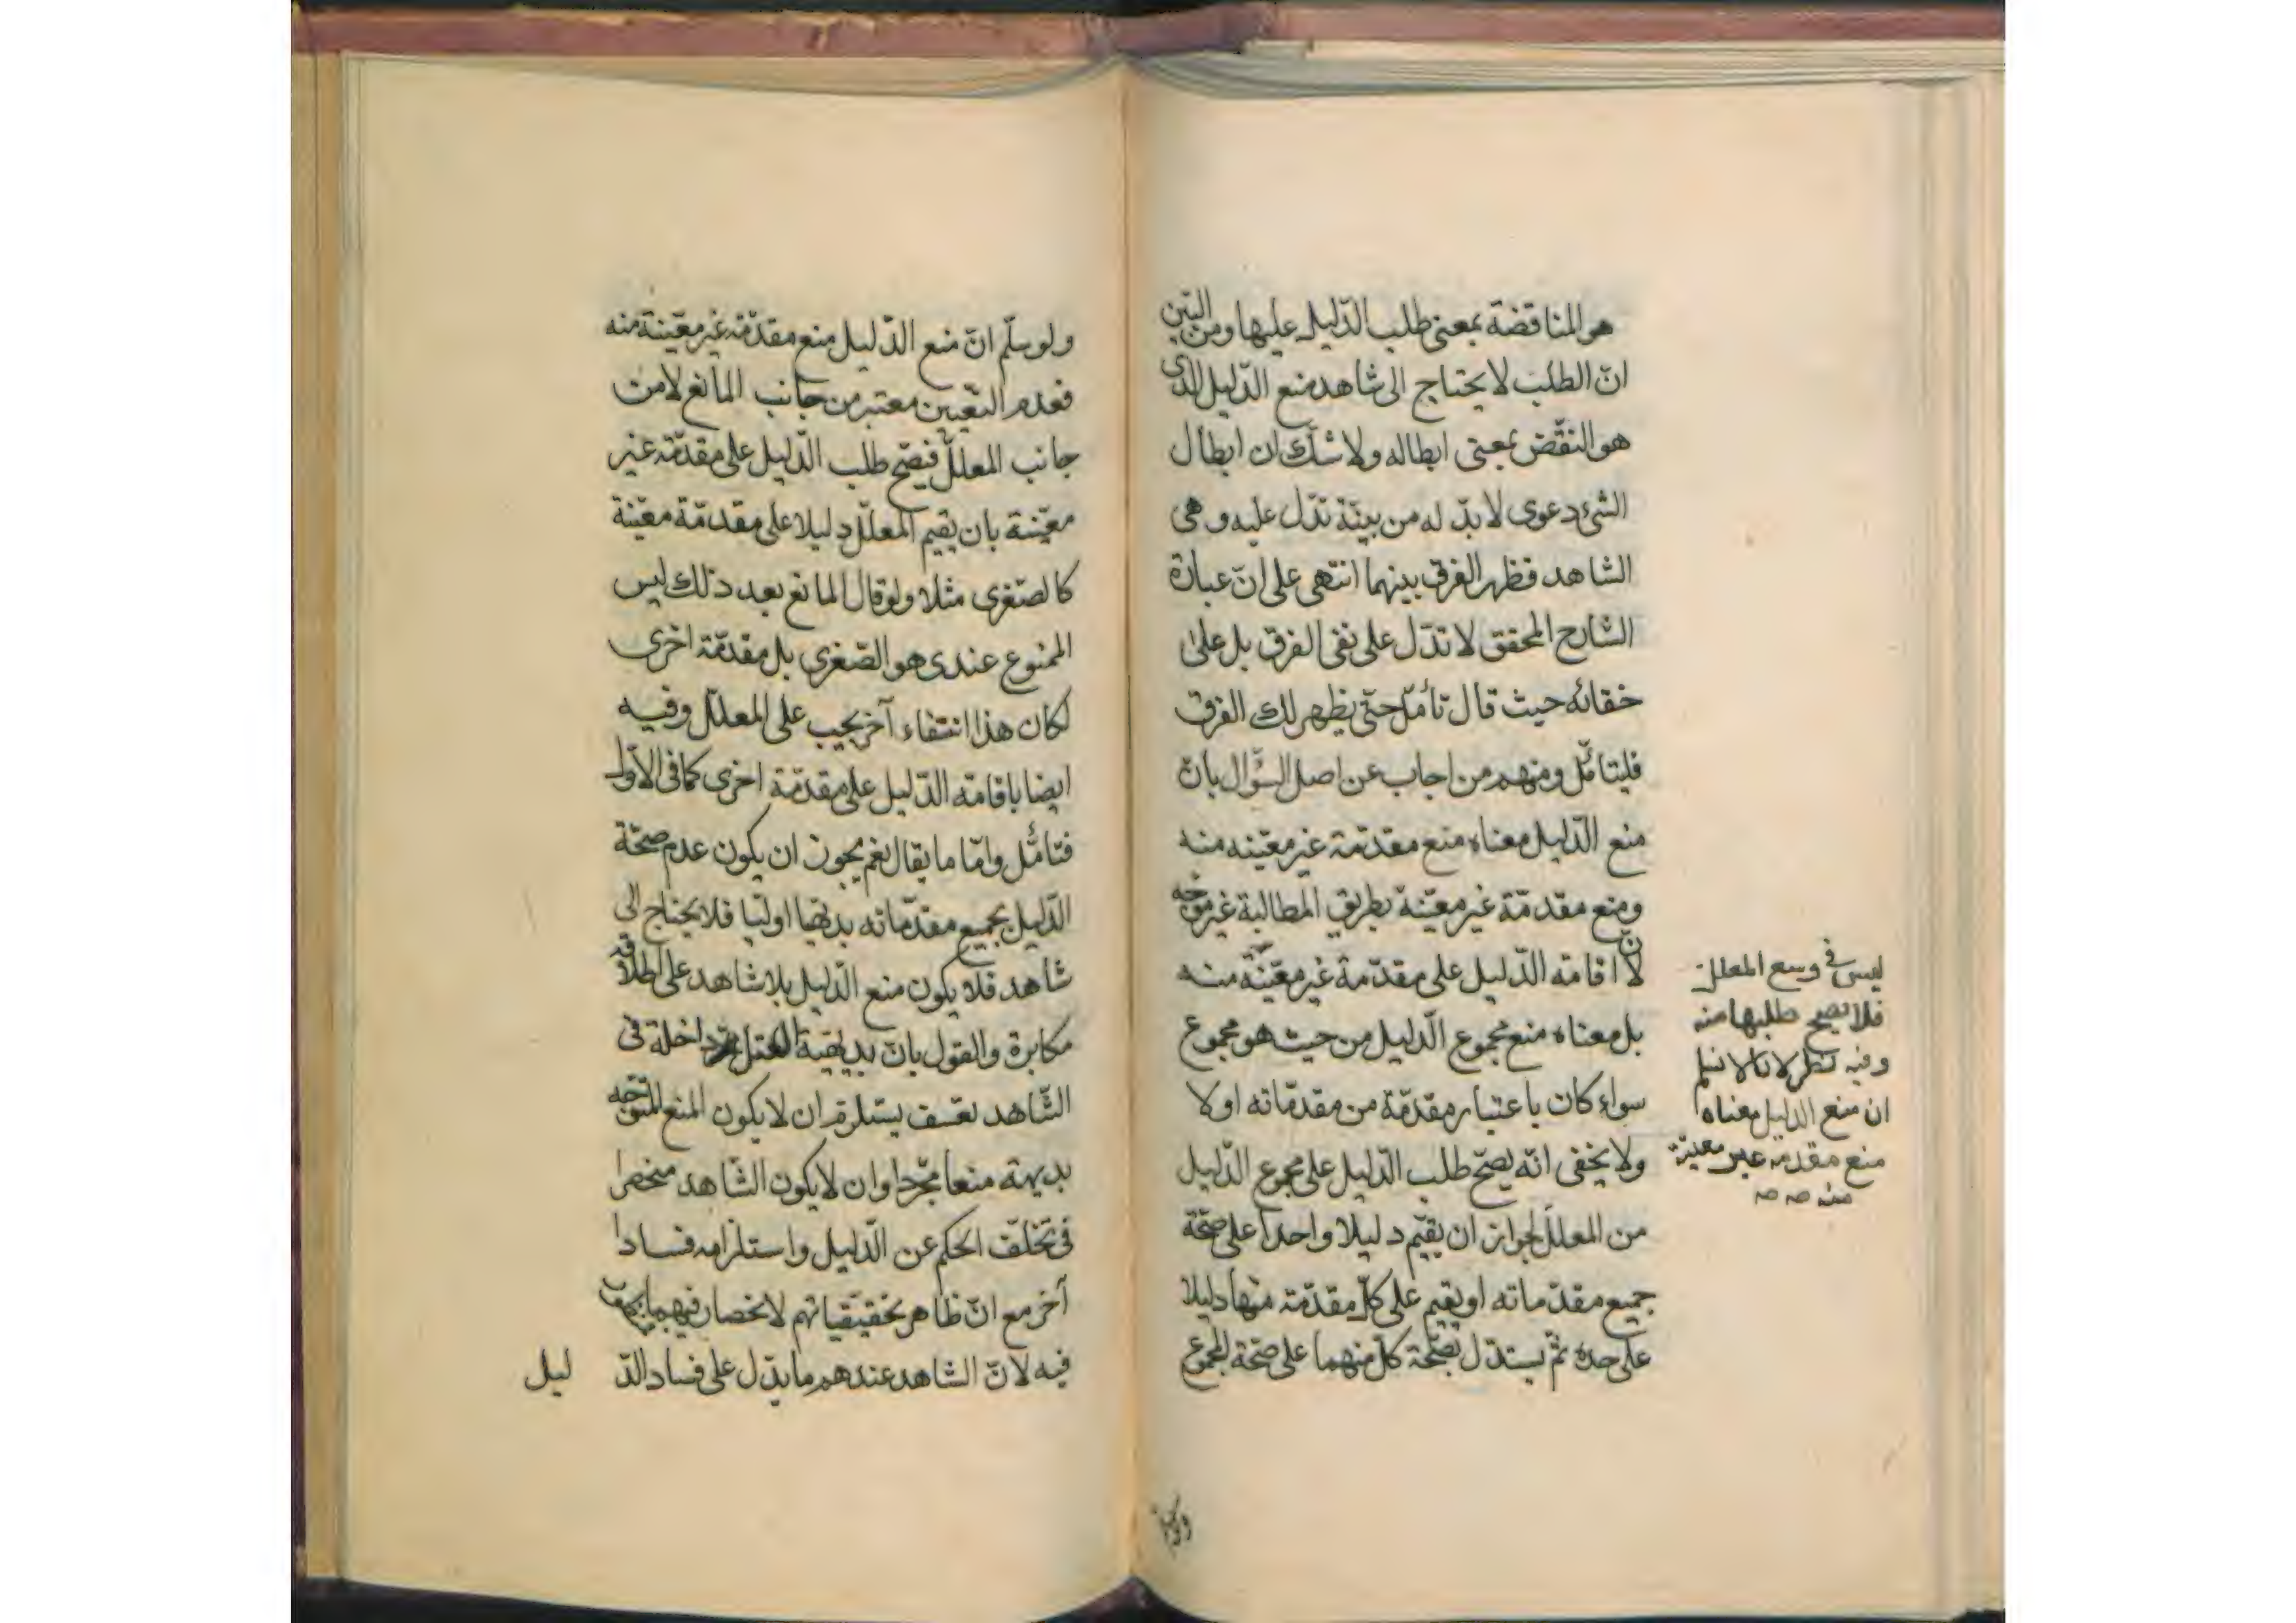 هو المناقضة بمعنى طلب الدّليل عليها ومن البيّن
انّ الطلب لا يحتاج الى شاهد منع الدّليل الذى
هو النقّض بمعنى ابطاله ولا شكّ ان ابطال
الشئ دعوى لا بدّ له من بيّنة تدّل عليه وهى
الشاهد فظهر الفرق بينهما انتهى على انّ عبارة
الشّارح المحقق لا تدّل على نفى الفرق بل على
خفائه حيث قال تأمّل حتّى يظهر لك الفرق
فليتأمّل ومنهم من اجاب عن اصل السّؤال بانّ
منع الدّليل معناه منع مقدّمة غير معيّنه منه
ومنع مقدمّة غير معيّنة بطريق المطالبة غير موجّه
لانّ اقامة الدّليل على مقدّمة غير معيّنّة منه
بل معناه منع مجموع الدّليل من حيث هو مجموع
سواء كان باعتبار مقدّمة من مقدّماته اولا
ولا يخفى انّه يصحّ طلب الدّليل على مجموع الدّليل
من المعلّل لجواز ان يقيّم دليلا واحدا على صحّة
جميع مقدّماته او يقيم على كلّ مقدّمة منها دليلا
على حدة ثمّ يستدّل بصحّة كلّ منهما على صحّة المجموع
ليس فى وسع المعلل
فلا يصح طلبها منه
وفيه نظر لانا لا نسلم
ان منع الدليل معناه
منع مقدمة غير معينة
منه صه صه
ولو
ولو سلّم انّ منع الدّليل منع مقدّمة غير معيّنة منه
فعدم التعّيين معتبر من جانب المانع لا من
جانب المعلّل فيصّح طلب الدّليل على مقدّمة غير
معيّنة بان يقيم المعلّل دليلا على مقدمّة معيّنة
كالصّغرى مثلا ولو قال المانع بعد ذلك ليس
الممنوع عندى هو الصّغرى بل مقدمّة اخرى
لكان هذا انتفاء آخر يجيب على المعلّل وفيه
ايضا باقامة الدّليل على مقدّمة اخرى كما فى الاوّل
فتأمّل وامّا ما يقال نعم يجوز ان يكون عدم صحّة
الدّليل بجميع مقدّماته بديهيا اوليّا فلا يحتاج الى
شاهد فلا يكون منع الدّليل بلا شاهد على اطلاقه
مكابرة والقول بانّ بديهية العقل داخلة فى
الشّاهد تعسّف يستلزم ان لا يكون المنع المتوجّه
بديهة منعا مجّردا وان لا يكون الشّاهد منحصرا
فى تخلّف الحكم عن الدّليل واستلزامه فسادا
آخر مع انّ ظاهر تحقيقياتهم لانحصار فيهما
فيه لانّ الشاهد عندهم ما يدّل على فساد الدّ
ليل